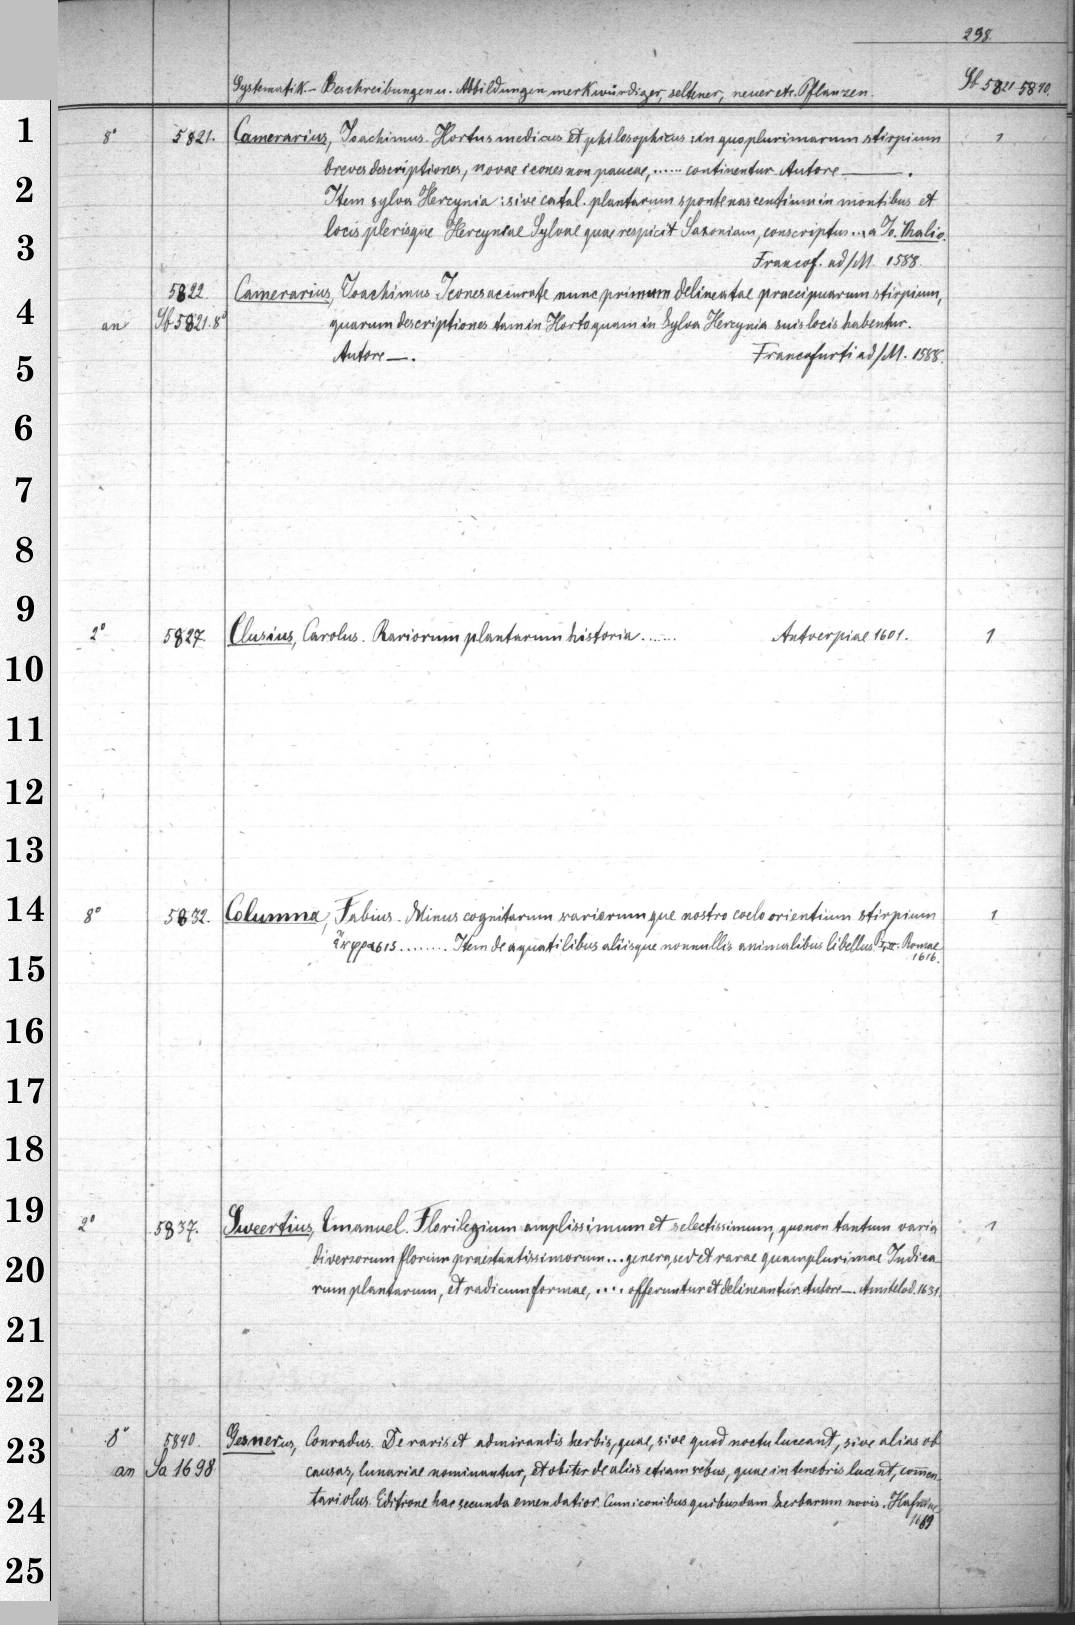 298.
Systematik - Beschreibungen u. Abbildungen merkwürdiger, seltener, neuer etc. Pflanzen.
Sb 5821-5840
1
8° 5821. Camerarius, Joachimus. Hortus medicus et philosophicus: in quo plurimarum stirpium 1
breves descriptiones, novae icones non paucae, ...... continentur. Autore —.
2
Item sylva Hercynia: sive catal. plantarum sponte nascentium in montibus et
3
locis plerisque Hercyniae Sylvae quae respicit Saxoniam, conscriptus ... a Jo. Thalio.
Francof. ad/M. 1588.
5822. Camerarius, Joachimus. Icones accurate nunc primum delineatae praecipuarum stirpium,
4
an Sb 5821. 8° quarum descriptiones tam in Horto quam in Sylva Hercynia suis locis habentur.
Autore —. Francofurti ad/M. 1588.
5
6
7
8
9
2° 5827. Clusius, Carolus. Rariorum plantarum historia ....... Antverpiae 1601. 1
10
11
12
13
14
8° 5832. Columna, Fabius. Minus cognitarum rariorum que nostro coelo orientium stirpium 1
ἔκφρασις ........ Item de aquatilibus aliisque nonnullis animalibus libellus. P. I, II. Romae
1616.
15
16
17
18
19
2° 5837. Sweertius, Emanuel. Florilegium amplissimum et selectissimum, quo non tantum varia 1
diversorum florum praestantissimorum ... genera, sed et rarae quamplurimae Indica-
20
rum plantarum, et radicum formae, .... offeruntur et delineantur. Autore —. Amstelod. 1631.
21
22
23
8° 5840. Gesnerus, Conradus. De raris et admirandis herbis, quae, sive quod noctu luceant, sive alias ob
an Sa 1698 causas, lunariae nominantur, et obiter de aliis etiam rebus, quae in tenebris lucent, commen-
24
tariolus. Editione hac secunda emendatior. Cum iconibus quibusdam herbarum novis. Hafniae
1669
25